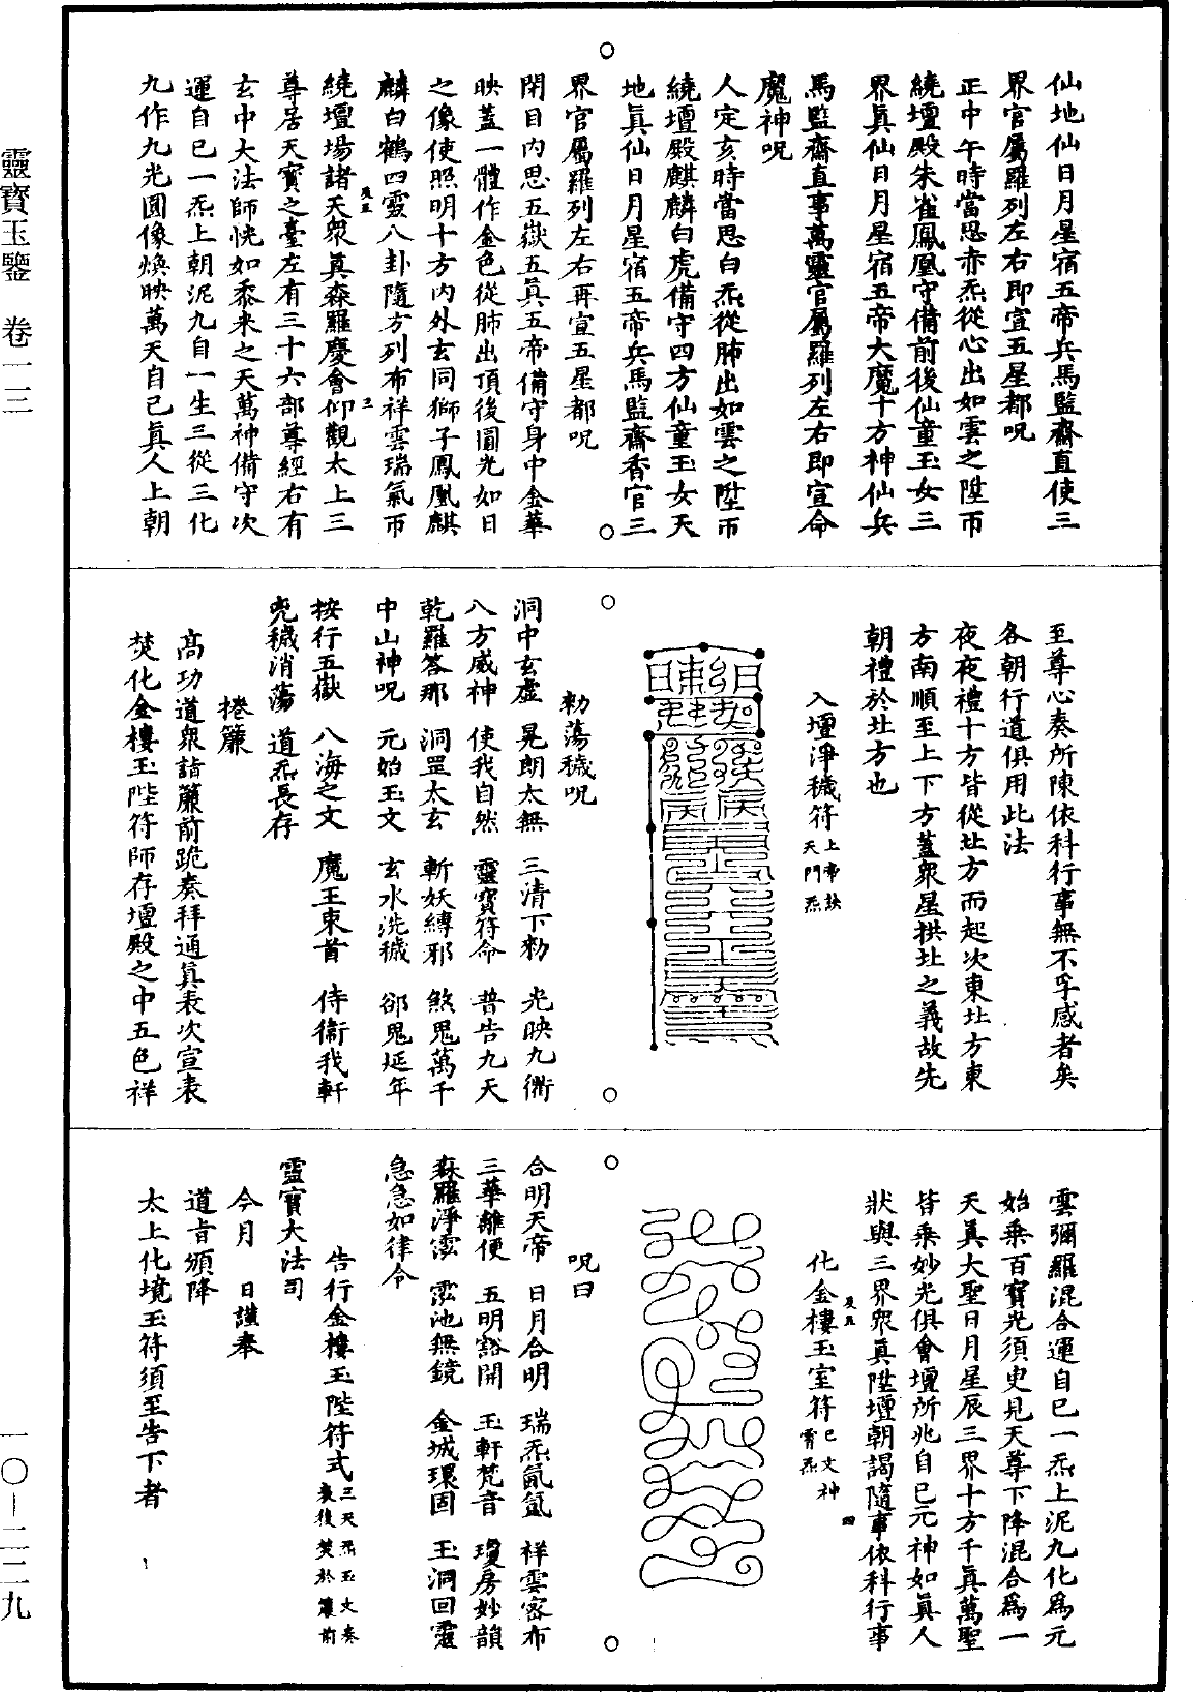 仙地仙日月星宿五帝兵馬監齋直使三
界官屬羅列左右即宣五星都呪
正中午時當思赤炁從心出如雲之陞帀
繞壇殿朱雀鳳凰守備前後仙童玉女三
界眞仙日月星宿五帝大魔十方神仙兵
馬監齋直事萬靈官屬羅列左右即宣命
魔神呪
人定亥時當思白炁從肺出如雲之陞帀
繞壇殿麒麟白虎備守四方仙童玉女天
地眞仙日月星宿五帝兵馬監齋香官三
界官屬羅列左右再宣五星都呪
閉目內思五嶽五眞五帝備守身中金華
映蓋一體作金色從肺出頂後圓光如日
之像使照明十方內外玄同獅子鳳凰麒
麟白鶴四靈八卦隨方列布祥雲瑞氣帀
繞壇場諸天眾眞森羅慶會仰觀太上三
尊居天寶之臺左有三十六部尊經右有
玄中大法師恍如黍米之天萬神備守次
運自己一炁上朝泥九自一生三從三化
九作九光圓像煥映萬天自己眞人上朝
至尊心奏所陳依科行事無不孚感者矣
各朝行道俱用此法
夜夜禮十方皆從北方而起次東北方東
方南順至上下方蓋眾星拱北之義故先
朝禮於北方也
入壇淨穢符上帝訣天門炁
勅蕩穢呪
洞中玄虛 晃朗太無 三清下勑 光映九衢
八方威神 使我自然 靈寶符命 普告九天
乾羅答那 洞罡太玄 斬妖縛邪 煞鬼萬千
中山神呪 元始玉文 玄水洗穢 郤鬼延年
按行五嶽 八海之文 魔王束首 侍衞我軒
兇穢消蕩 道炁長存
捲簾
高功道眾詣簾前跪奏拜通眞表次宣表
焚化金樓玉陛符師存壇殿之中五色祥
雲彌羅混合運自巳一炁上泥九化爲元
始乘百寶光須臾見天尊下降混合爲一
天眞大聖日月星辰三界十方千眞萬聖
皆乘妙光俱會壇所兆自己元神如眞人
狀與三界眾眞陞壇朝謁隨事依科行事
化金樓玉室符巳文神霄炁
呪曰
合明天帝 日月合明 瑞炁氤氳 祥雲密布
三華離便 五明豁開 玉軒梵音 瓊房妙韻
森羅淨㴠 㴠池無鏡 金城環固 玉洞回靈
急急如律令
告行金樓玉陛符式三天炁玉文奏表後焚於簾前
靈寶大法司
今月 日謹奉
道旨頒降
太上化境玉符須至告下者
靈寶玉鑒 卷一三
一〇—二二九